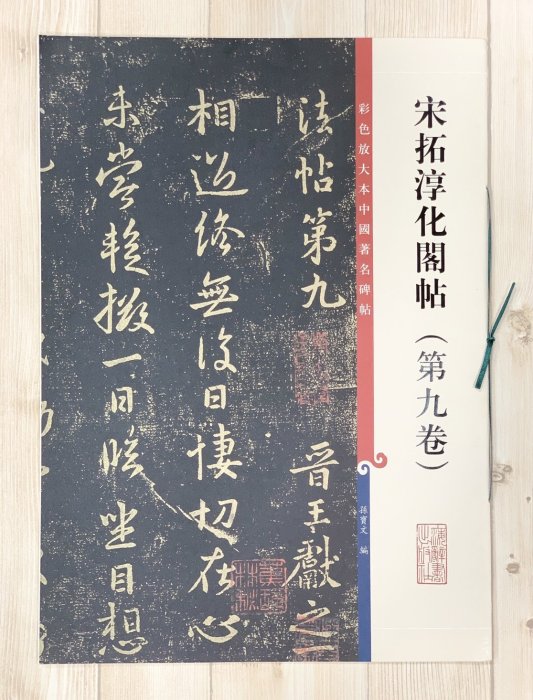 宋拓淳化閣帖（第九卷）
彩色放大本中國著名碑帖
孫寶文 編
法帖第九 晉王獻之一
相過終無復日悽切在心
未嘗輟撥一日臨坐目想